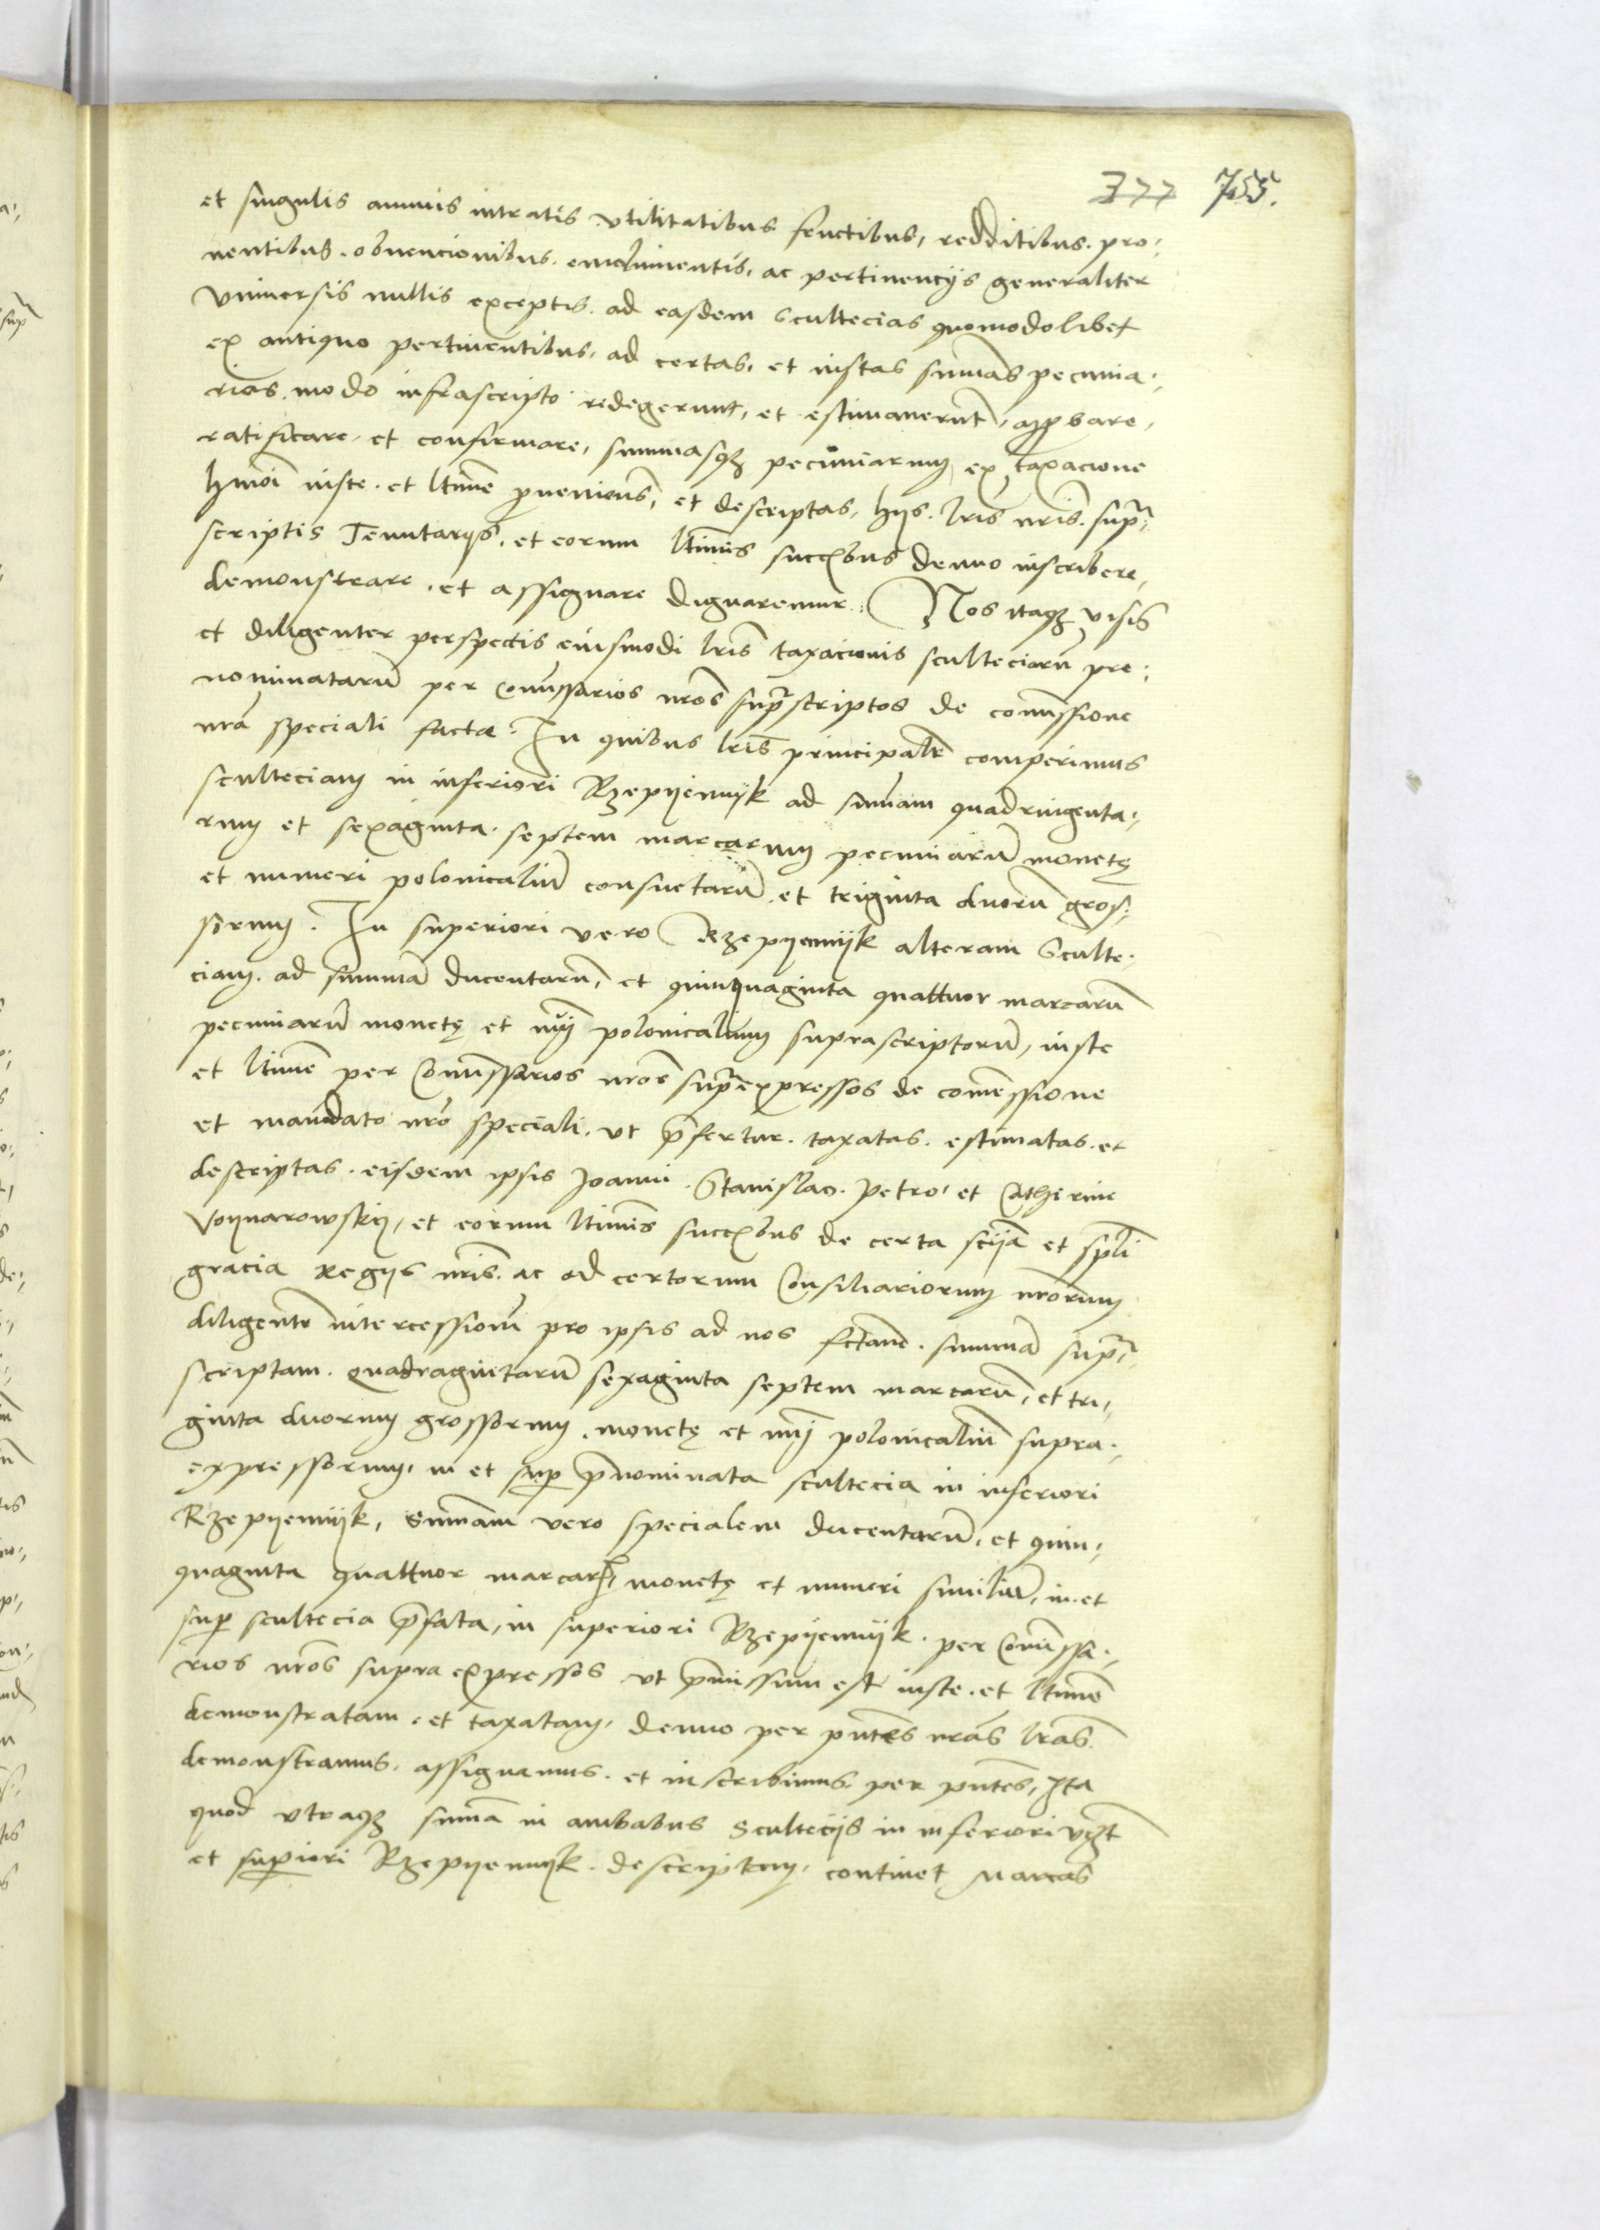 377 755.
et singulis annuis intratis utilitatibus fructibus, redditibus. pro-
uentibus. obuencionibus. emolumentis. ac pertinencijs generaliter
vniuersis nullis exceptis. ad easdem Scultecias quomodolibet
ex antiquo pertinentibus. ad certas. et iustas sum̄as pecunia-
rias. modo infrascripto redegerunt, et estimauerunt, approbare,
ratificare, et confirmare, summasqȝ pecuniarum ex taxacione
hm̄oi iuste. et ltim̄e prouenien̄s, et descriptas, hijs. lr̄is nr̄is. supra-
scriptis Tenutarijs. et eorum ltimis succ̄ribus denuo inscribere,
demonstrare, et assignare dignaremur. Nos itaqȝ visis
et diligenter perspectis eiusmodi lr̄is taxacionis sculteciarū pre-
nominatarū per Com̄issarios nr̄os supra scriptos de com̄issione
nr̄a speciali facta. In quibus lr̄is principalē comperimus
sculteciam in inferiori Rzepyennyk ad sum̄am quadringenta-
rum et sexaginta septem marcarum pecuniarū monetę
et numeri polonicaliū consuetarū et triginta duorū gros-
sorum. In superiori vero Rzepyennyk alteram Sculte-
ciam. ad summā ducentarū, et quinquaginta quattuor marcarū
pecuniarū monetę et nrj polonicalium suprascriptorū, iuste
et ltim̄e per Com̄issarios nr̄os supra expressos de com̄issione
et mandato nr̄o speciali. ut p̄fertur. taxatas. estimatas. et
descriptas. eisdem ipsis Joanni. Stanislao. Petro, et Catherine
Voynarowskij, et eorum ltimis succ̄ribus de certa sciā et spl̄i
gracia regijs nr̄is. ac ad certorum Consiliariorum nr̄orum
diligentē intercessionē pro ipsis ad nos factam. summā supra-
scriptam. quadragintarū sexaginta septem marcarū, et tri-
ginta duorum grossorum. monetę et nrj polonicaliū supra-
expressorum, in et super p̄nominata scultecia in inferiori
Rzepyennyk, Sum̄am vero specialem ducentarū, et quin-
quaginta quattuor marcarū, monetę et numeri similiū, in et
super scultecia p̄fata, in superiori Rzepyennyk. per Com̄issa-
rios nr̄os supra expressos ut p̄missum est iuste. et ltim̄e
demonstratam. et taxatam, denuo per pn̄tes nr̄as lr̄as.
demonstramus. assignamus. et inscribimus. per pn̄tes, Ita
quod utraqȝ sum̄a in ambabus Scultecijs in inferiori vȝt
et superiori Rzepyennyk. descriptam, continet Marcas